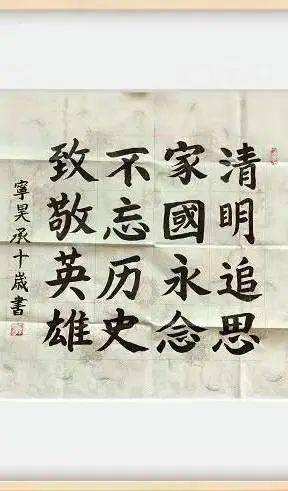 清明追思
家國永念
不忘历史
致敬英雄
寧昊承十歲書